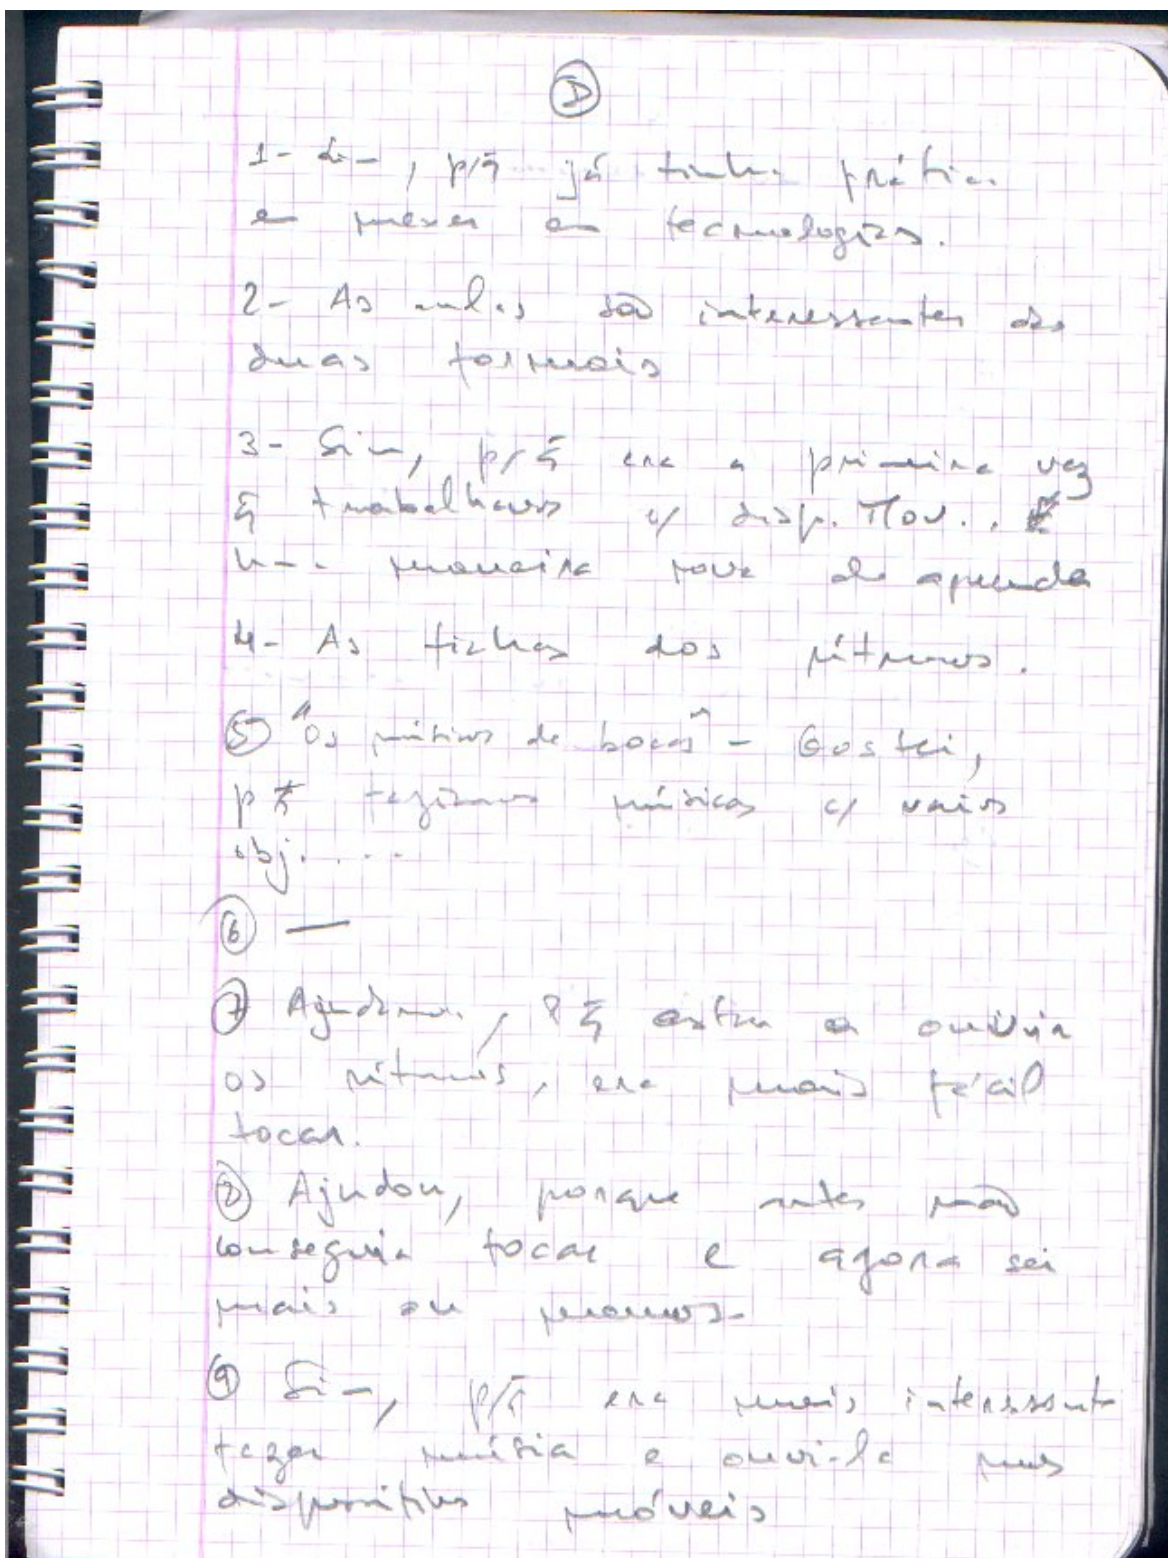 D
1- , p/q̃ já tinha prática
em mexer em tecnologias.
2- As aulas são interessantes das
duas formais
3- Sim, p/q̃ era a primeira vez
q̃ trabalhavos c/ disp. Mov..
maneira nova de aprender
4- As fichas dos ritmos.
5 "Os músicos de bocas" - Gostei,
pq̃ fazíamos músicas c/ vários
obj. ...
6 —
7 Ajudaram, pq̃ estar a ouvir
os ritmos, era mais fácil
tocar.
8 Ajudou, porque antes não
conseguia tocar e agora sei
mais ou menos-
9 Sim, p/q̃ era mais interessant
fazer música e ouvi-la nos
dispositivos móveis